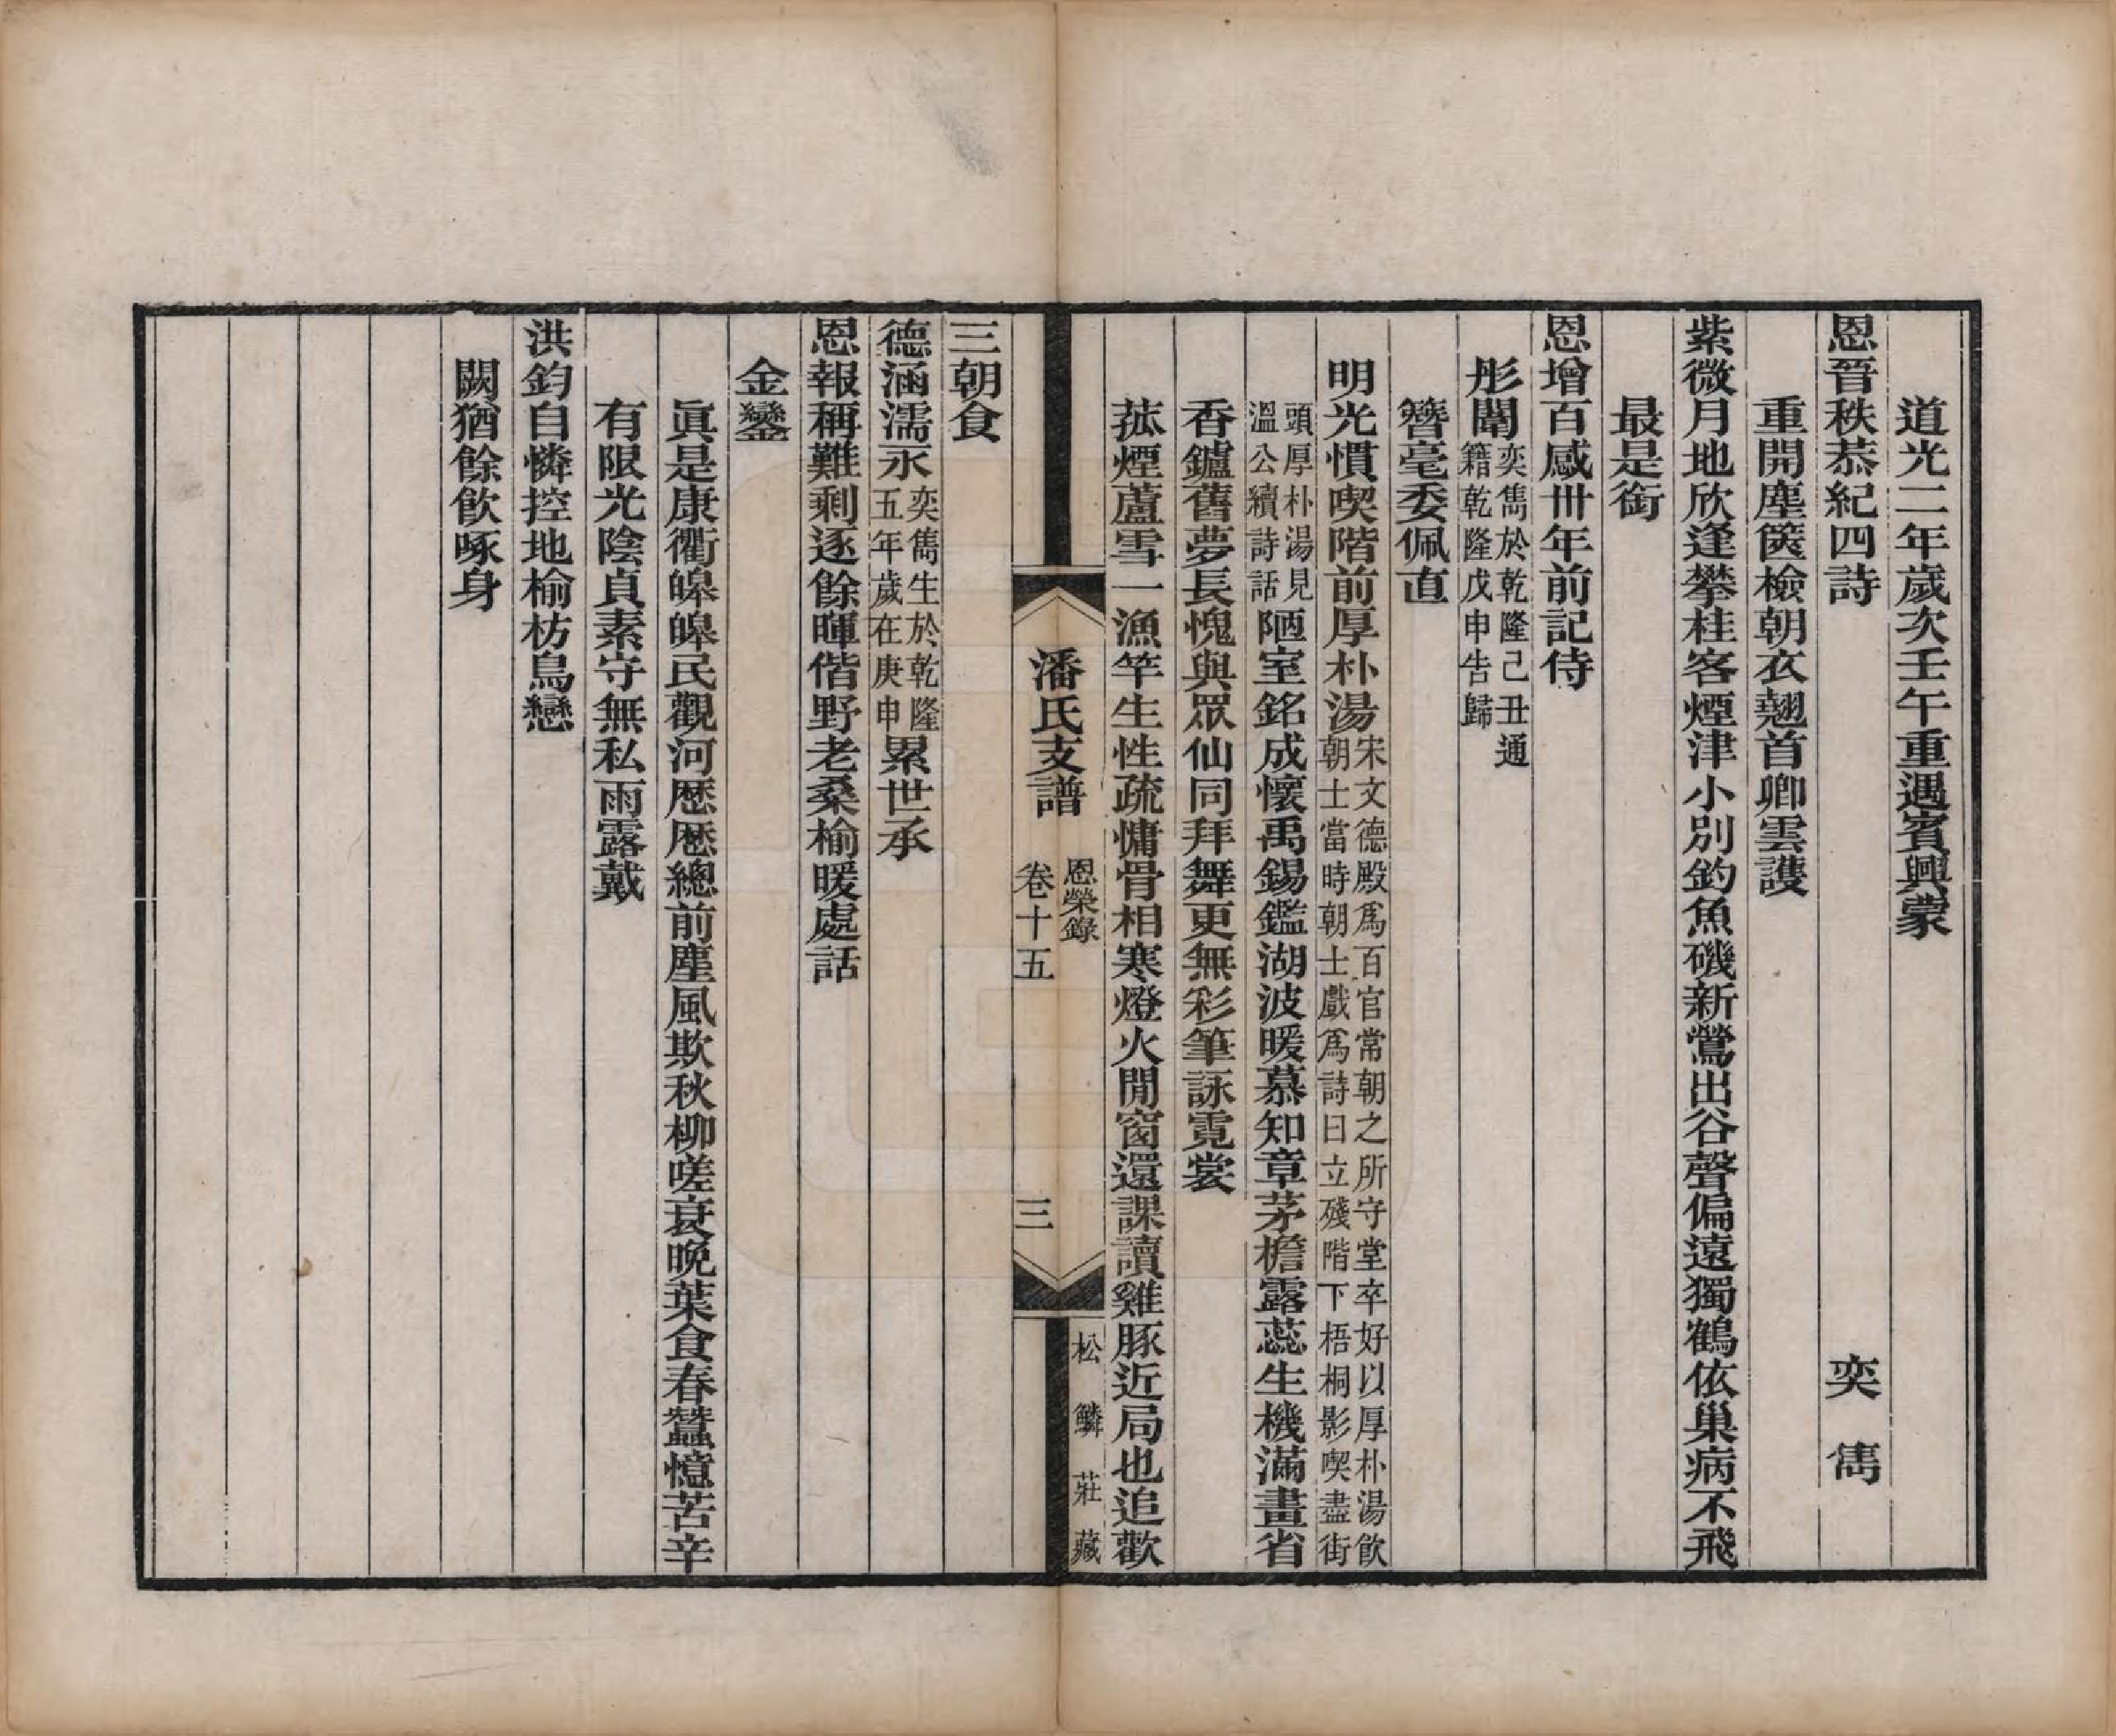 道光二年歲次壬午重遇賓興蒙
恩晉秩恭紀四詩　奕雋
重開塵篋檢朝衣翹首卿雲護
紫微月地欣逢攀桂客煙津小別釣魚磯新鶯出谷聲偏遠獨鶴依巢病不飛
最是銜
恩增百感卅年前記侍
彤闈奕雋於乾隆己丑通
籍乾隆戊申告歸
簪毫委佩直
明光慣喫階前厚朴湯宋文德殿爲百官常朝之所守堂卒好以厚朴湯飲
朝士當時朝士戲爲詩曰立殘階下梧桐影喫盡街
頭厚朴湯見
溫公續詩話陋室銘成懷禹錫鑑湖波暖慕知章茅檐露蕊生機滿畫省
香鑪舊夢長愧與眾仙同拜舞更無彩筆詠霓裳
菰煙蘆雪一漁竿生性疏慵骨相寒燈火閒窗還課讀雞豚近局也追歡
潘氏支譜
恩榮錄
卷十五
三
松鱗莊藏
三朝食
德涵濡永奕雋生於乾隆
五年歲在庚申累世承
恩報稱難剩逐餘暉偕野老桑榆暖處話
金鑾
眞是康衢皞皞民觀河歷歷總前塵風欺秋柳嗟衰晚葉食春蠶憶苦辛
有限光陰貞素守無私雨露戴
洪鈞自憐控地榆枋鳥戀
闕猶餘飲啄身